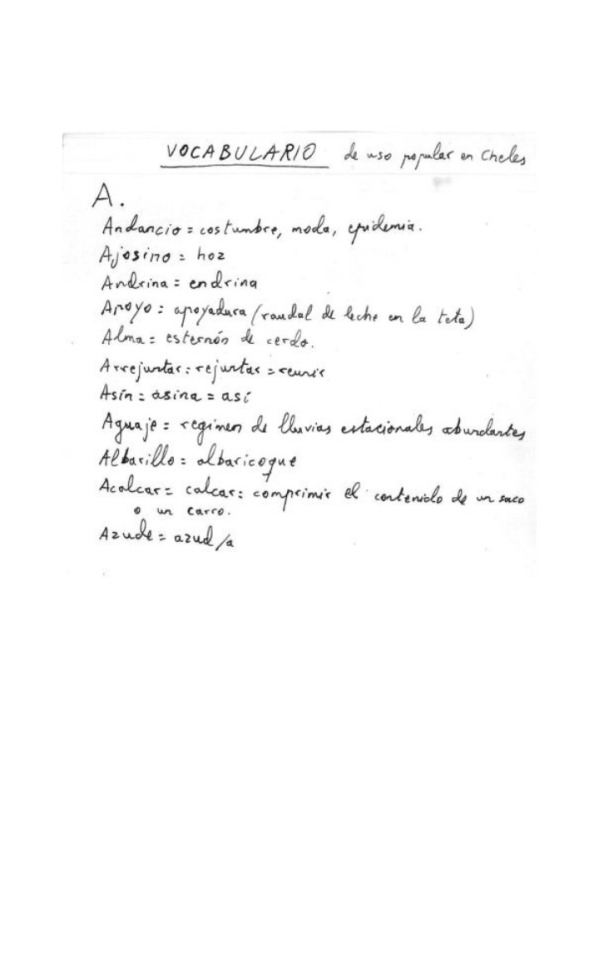 VOCABULARIO de uso popular en Cheles
A.
Andancio = costumbre, moda, epidemia.
Ajosino = hoz
Andrina = endrina
Apoyo = apoyadura (raudal de leche en la teta)
Alma = esternón de cerdo.
Arrejuntar = rejuntar = reunir
Asín = asina = así
Aguaje = regimen de lluvias estacionales abundantes
Albarillo = albaricoque
Acalcar = calcar: comprimir el contenido de un saco
o un carro.
Azude = azud/a